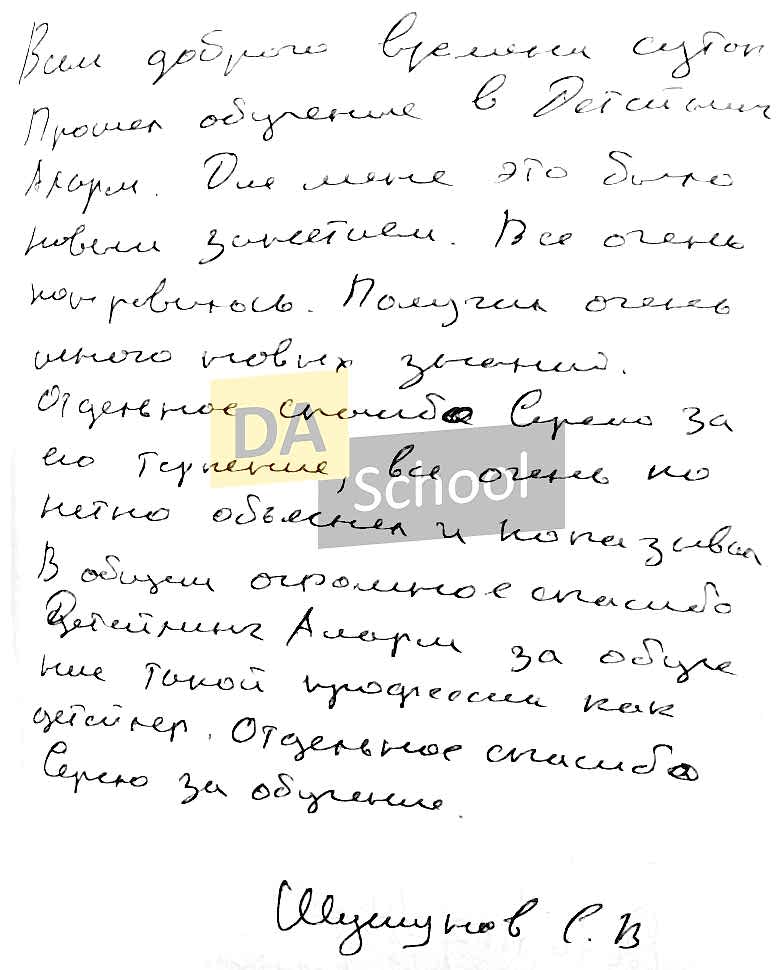 Всем доброго времени суток
Прошел обучение в Детейлинг
Аларм. Для меня это было
новым занятием. Все очень
понравилось. Получил очень
много новых знаний.
Отдельное спасибо Сергею за
его терпение, все очень по
нятно объяснял и показывал
В общем огромное спасибо
Детейлинг Аларм за обуче
ние такой профессии как
детейлер. Отдельное спасибо
Сергею за обучение.
С. В
DA
School